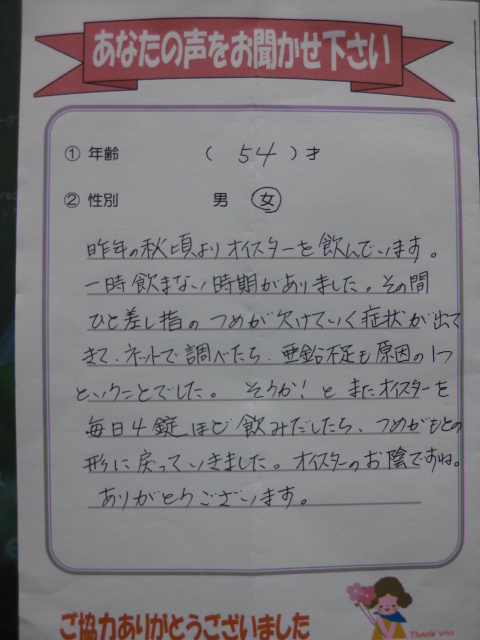 あなたの声をお聞かせ下さい
① 年齢 ( 54 ) 才
② 性別 男 女
昨年の秋頃よりオイスターを飲んでいます。
一時飲まない時期がありました。その間
ひと差し指のつめが欠けていく症状が出て
きて、ネットで調べたら、亜鉛不足も原因の1つ
ということでした。そうか!とまたオイスターを
毎日4錠ほど飲みだしたら、つめがもとの
形に戻っていきました。オイスターのお陰ですね。
ありがとうございます。
ご協力ありがとうございました
Thank you!